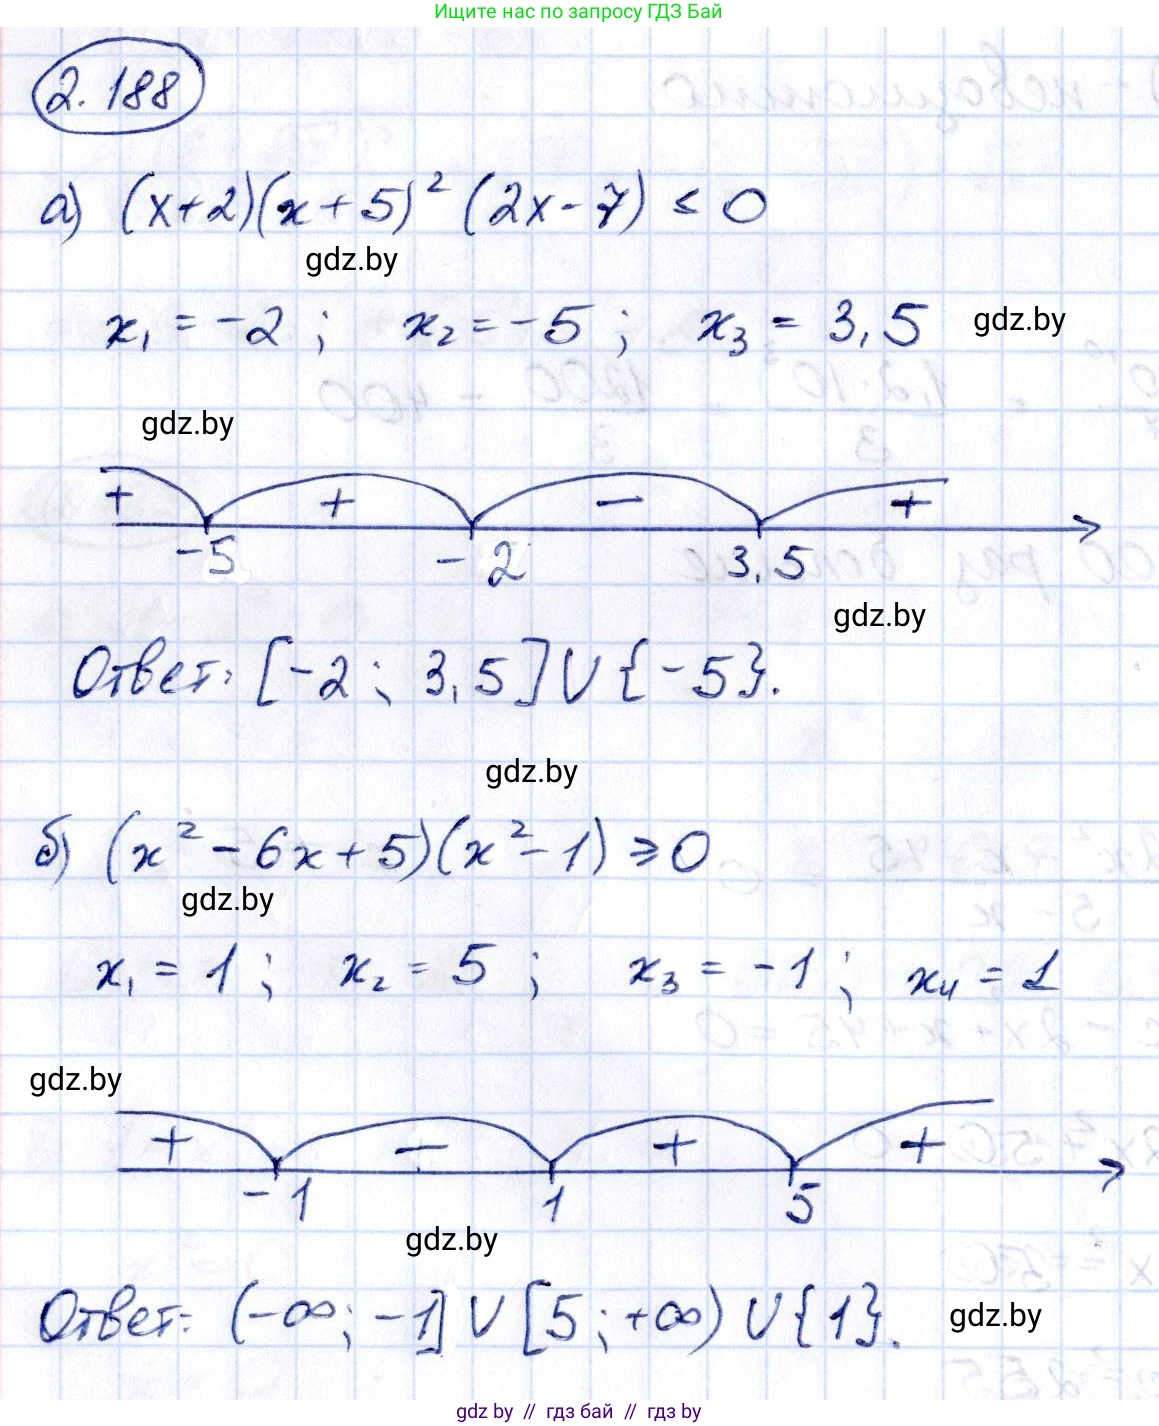 Ищите нас по запросу ГДЗ Бай
2.188
а) (x+2)(x+5)² (2x-7) ≤ 0
gdz.by
x₁ = -2 ; x₂ = -5 ; x₃ = 3,5 gdz.by
gdz.by
+ + − +
-5 -2 3,5
gdz.by
Ответ: [-2 ; 3,5] ∪ {-5}.
gdz.by
б) (x² - 6x + 5)(x² - 1) ≥ 0
gdz.by
x₁ = 1 ; x₂ = 5 ; x₃ = -1 ; x₄ = 1
gdz.by
+ − + +
-1 1 5
gdz.by
Ответ: (-∞; -1] ∪ [5 ; +∞) ∪ {1}. gdz.by
gdz by // гдз бай // гдз by